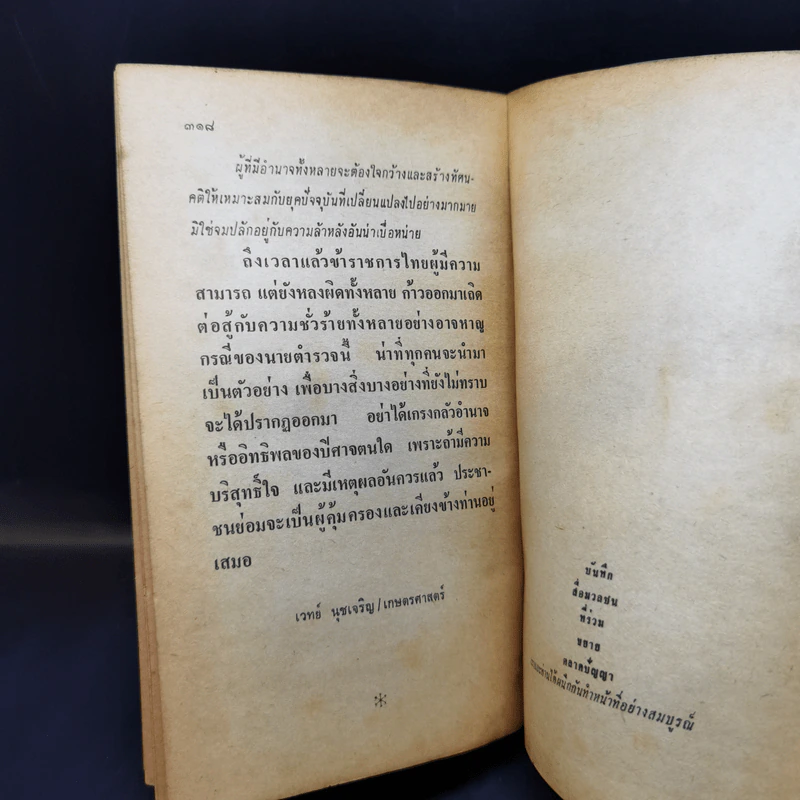 ๓๑๘
ผู้ที่มีอำนาจทั้งหลายจะต้องใจกว้างและสร้างทัศน-
คติให้เหมาะสมกับยุคปัจจุบันที่เปลี่ยนแปลงไปอย่างมากมาย
มิใช่จมปลักอยู่กับความล้าหลังอันน่าเบื่อหน่าย
ถึงเวลาแล้วข้าราชการไทยผู้มีความ
สามารถ แต่ยังหลงผิดทั้งหลาย ก้าวออกมาเถิด
ต่อสู้กับความชั่วร้ายทั้งหลายอย่างอาจหาญ
กรณีของนายตำรวจนี้ น่าที่ทุกคนจะนำมา
เป็นตัวอย่าง เพื่อบางสิ่งบางอย่างที่ยังไม่ทราบ
จะได้ปรากฏออกมา อย่าได้เกรงกลัวอำนาจ
หรืออิทธิพลของปีศาจตนใด เพราะถ้ามีความ
บริสุทธิ์ใจ และมีเหตุผลอันควรแล้ว ประชา-
ชนย่อมจะเป็นผู้คุ้มครองและเคียงข้างท่านอยู่
เสมอ
เวทย์ นุชเจริญ/เกษตรศาสตร์
บันทึก
สื่อมวลชน
ที่ร่วม
ขยาย
ตลาดปัญญา
กันทำหน้าที่อย่างสมบูรณ์